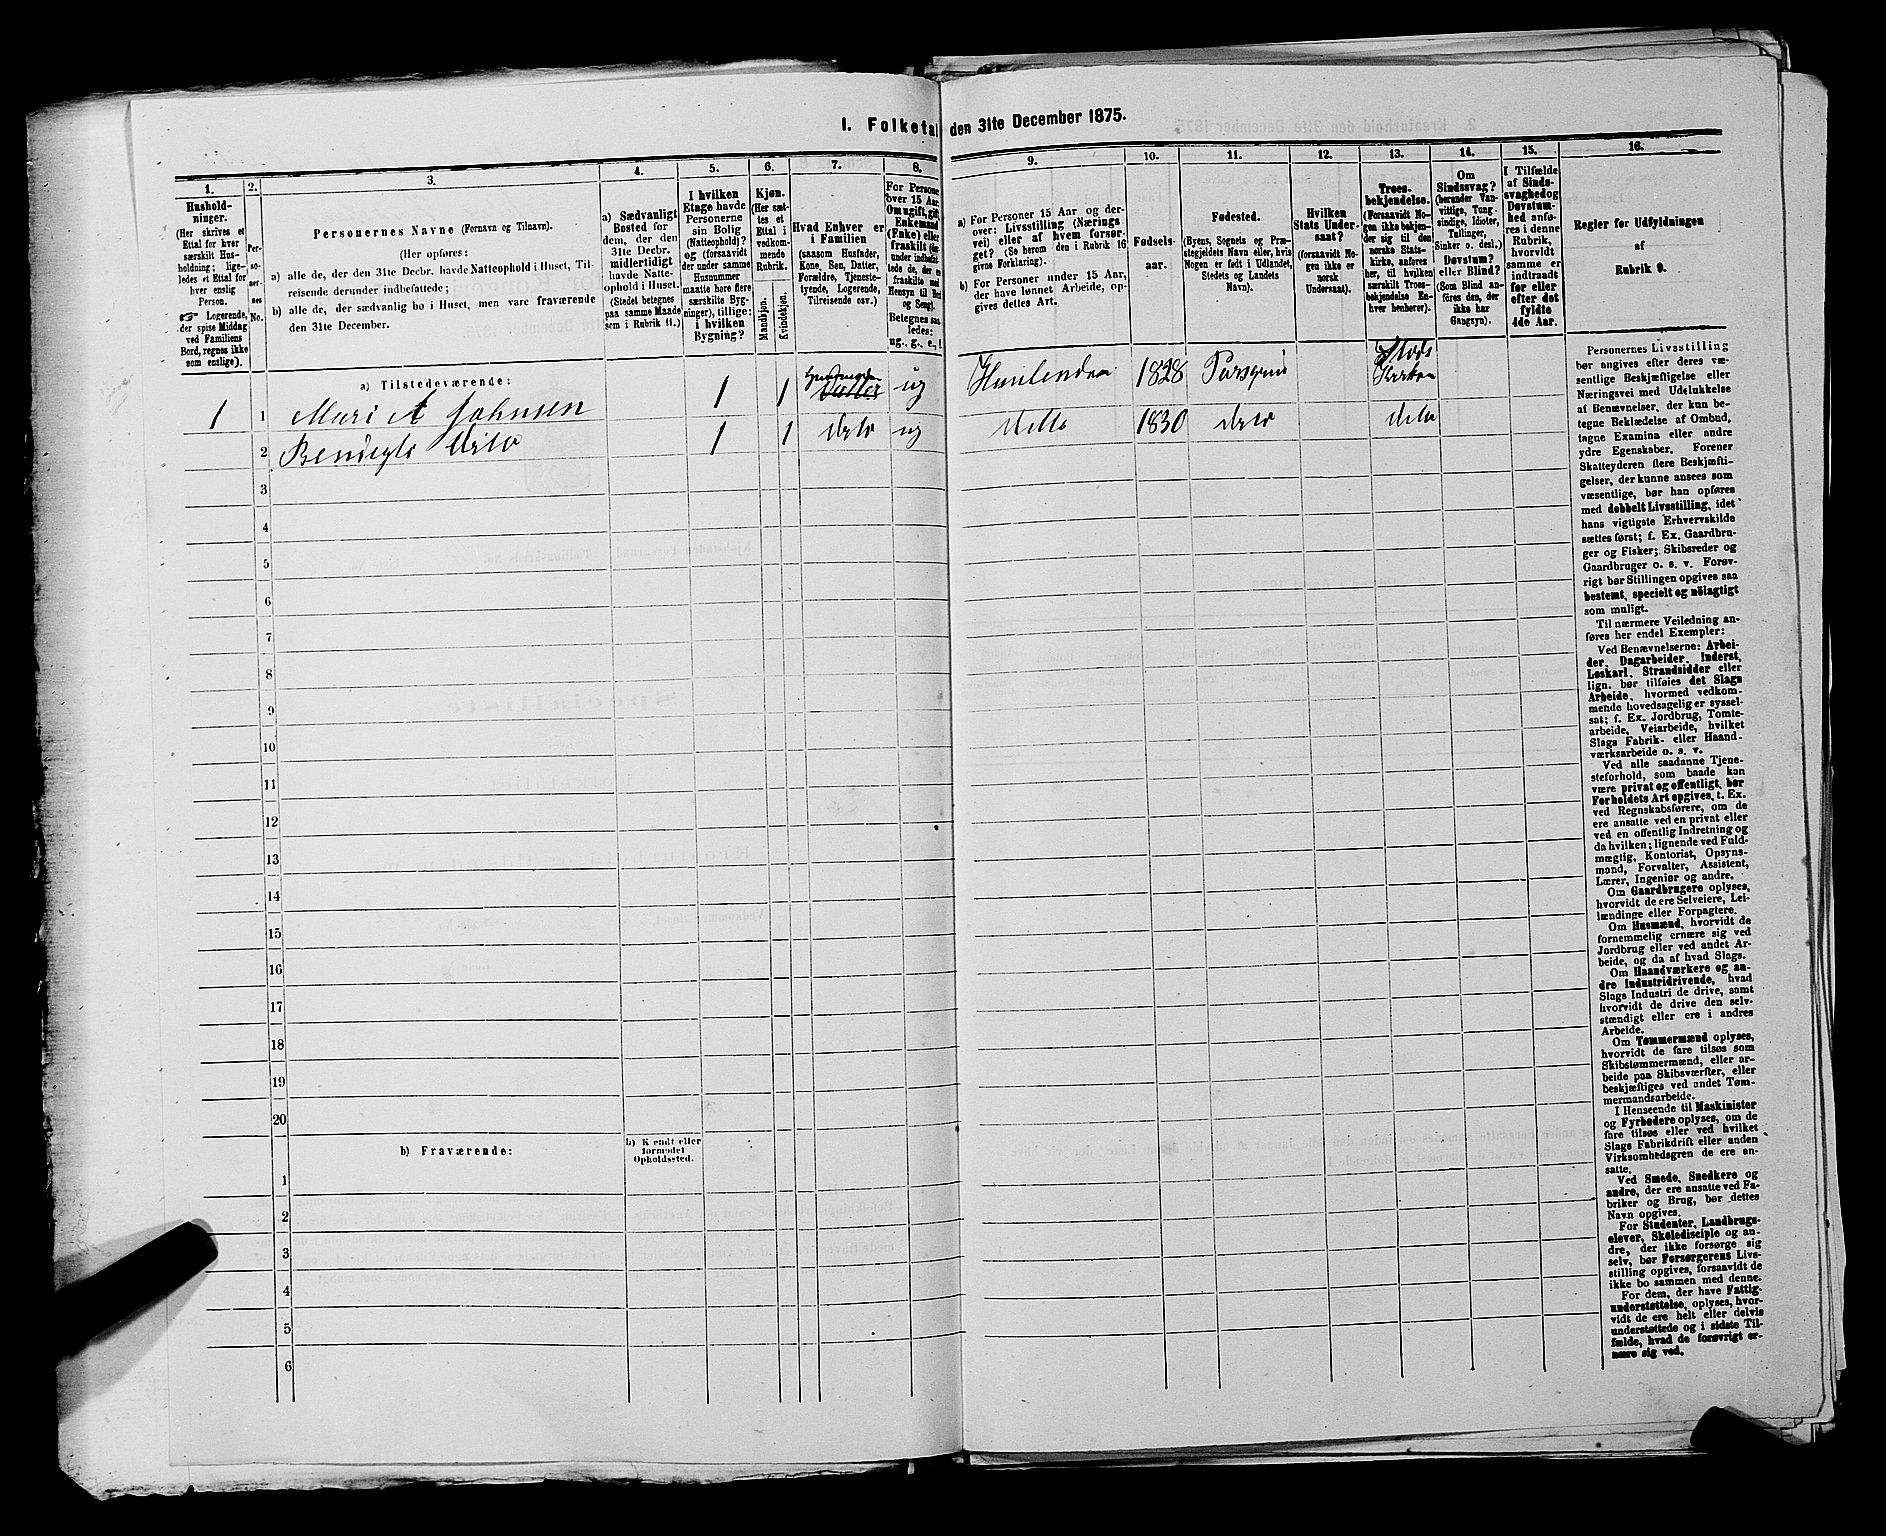 I. Folketal den 31te December 1875.
1.
2.
3.
4.
5.
6.
7.
8.
9.
10.
11.
12.
13.
14.
15.
16.
Hushold-
ninger.
(Her skrives et
Ettal for hver
særskilt Hus-
holdning; lige-
ledes et Ettal for
hver enslig
Person.
☞ Logerende,
der spise Middag
ved Familiens
Bord, regnes ikke
som enslige).
Per-
so-
ner-
nes
No.
Personernes Navne (Fornavn og Tilnavn).
(Her opføres:
a) alle de, der den 31te Decbr. havde Natteophold i Huset, Til-
reisende derunder indbefattede;
b) alle de, der sædvanlig bo i Huset, men vare fraværende
den 31te December.
a) Sædvanligt
Bosted for
dem, der den
31te Decbr.
midlertidigt
havde Natte-
ophold i Huset.
(Stedet betegnes
paa samme Maade
som i Rubrik 11.)
I hvilken
Etage havde
Personerne
sin Bolig
(Natteophold)?
og (forsaavidt
der under samme
Husnummer
maatte høre flere
særskilte Byg-
ninger), tillige:
i hvilken
Bygning?
Kjøn.
(Her sæt-
tes et
Ettal i
vedkom-
mende
Rubrik.
Mandkjøn.
Kvindekjøn.
Hvad Enhver er
i Familien
(saasom Husfader,
Kone, Søn, Datter,
Forældre, Tjeneste-
tyende, Logerende,
Tilreisende osv.)
For Persone
over 15 Aar:
Om ugift, gift,
Enkemand
(Enke) eller
fraskilt (der-
under indbefat-
tede de, der er
fraskilte med
Hensyn til Bord
og Seng).
Betegnes saa-
ledes:
ug., g., e., f.
a) For Personer 15 Aar og der-
over: Livsstilling (Nærings-
vei) eller af hvem forsør-
get? (Se herom den i Rubrik 16
givne Forklaring).
b) For Personer under 15 Aar,
der have lønnet Arbeide, op-
gives dettes Art.
Fødsels-
aar.
Fødested.
(Byens, Sognets og Præ-
stegjeldets Navn eller, hvis
Nogen er født i Udlandet,
Stedets og Landets
Navn).
Hvilken
Stats Under-
saat?
(forsaavidt No-
gen ikke er
norsk
Undersaat).
Troes-
bekjendelse.
(Forsaavidt No-
gen ikke bekjen-
der sig til den
norske Stats-
kirke, anføres
her, til hvilken
særskilt Troes-
bekjendelse En-
hver henhører).
Om
Sindssvag?
(herunder Van-
vittige, Tung-
sindige, Idioter,
Tullinger,
Sinker o. desl.)
Døvstum?
eller Blind?
(Som Blind an-
føres den, der
ikke har
Gangsyn).
I Tilfælde
af Sinds-
svaghedog
Døvstum-
hed anfø-
res i denne
Rubrik,
hvorvidt
samme er
indtraadt
før eller
efter det
fyldte
4de Aar.
Regler for Udfyldningen
af
Rubrik 9.
a) Tilstedeværende:
1 1 Mari A Johnsen 1 1 ug 1828 Stats Kirken
2 Dito 1 1 dito ug ditto 1830 dito dito
3
4
5
6
7
8
9
10
11
12
13
14
15
16
17
18
19
20
b) Fraværende:
b) Kjendt eller
formodet
Opholdssted.
1
2
3
4
5
6
Personernes Livsstilling
bør angives efter deres væ-
sentlige Beskjæftigelse eller
Næringsvei med Udelukkelse
af Benævnelser, der kun be-
tegne Beklædelse af Ombud,
tagne Examina eller andre
ydre Egenskaber. Forener
Skatteyderen flere Beskjæfti-
gelser, der kunne ansees som
væsentlige, bør han opføres
med dobbelt Livsstilling, idet
hans vigtigste Erhvervskilde
sættes først; f. Ex. Gaardbru-
ger og Fisker; Skibsreder og
Gaardbruger o. s. v. Forøv-
rigt bør Stillingen opgives saa
bestemt, specielt og nöiagtigt
som muligt.
Til nærmere Veiledning an-
føres her endel Exempler:
Ved Benævnelserne: Arbei-
der, Dagarbeider, Inderst,
Løskarl, Strandsidder eller
lign. bør tilføies det Slags
Arbeide, hvormed vedkom-
mende hovedsagelig er syssel-
sat; f. Ex. Jordbrug, Tomte-
arbeide, Veiarbeide, hvilket
Slags Fabrik- eller Haand-
værksarbeide o. s. v.
Ved alle saadanne Tjene-
steforhold, som baade kan
være privat og offentligt, bør
Forholdets Art opgives, f. Ex.
ved Regnskabsførere, om de
ere ansatte ved en privat eller
ved en offentlig Indretning og
da hvilken; lignende ved Fuld-
mægtig, Kontorist, Opsyns-
mand, Forvalter, Assistent,
Lærer, Ingeniør og andre.
Om Gaardbrugere oplyses,
hvorvidt de ere Selveiere, Lei-
lændinge eller Forpagtere.
Om Husmænd, hvorvidt de
fornemmelig ernære sig ved
Jordbrug eller ved andet Ar-
beide, og da af hvad Slags.
Om Haandværkere og an-
dre Industridrivende, hvad
Slags Industri de drive, samt
hvorvidt de drive den selv-
stændigt eller ere i andres
Arbeide.
Om Tømmermænd oplyses,
hvorvidt de fare tilsøs som
Skibstømmermænd, eller ar-
beide paa Skibsværfter, eller
beskjæftiges ved andet Tøm-
mermandsarbeide.
I Henseende til Maskinister
og Fyrbødere oplyses, om de
fare tilsøs eller ved hvilket
Slags Fabrikdrift eller anden
Virksomhedsgren de ere an-
satte.
Ved Smede, Snedkere og
andre, der ere ansatte ved Fa-
briker og Brug, bør dettes
Navn opgives.
For Studenter, Landbrugs-
elever, Skoledisciple og an-
dre, der ikke forsørge sig
selv, bør Forsørgerens Livs-
stilling opgives, forsaavidt de
ikke bo sammen med denne.
For dem, der have Fattig-
understøttelse, oplyses, hvor-
vidt de ere helt eller delvis
understøttede og i sidste Til-
fælde, hvad de forøvrigt er-
nære sig ved.